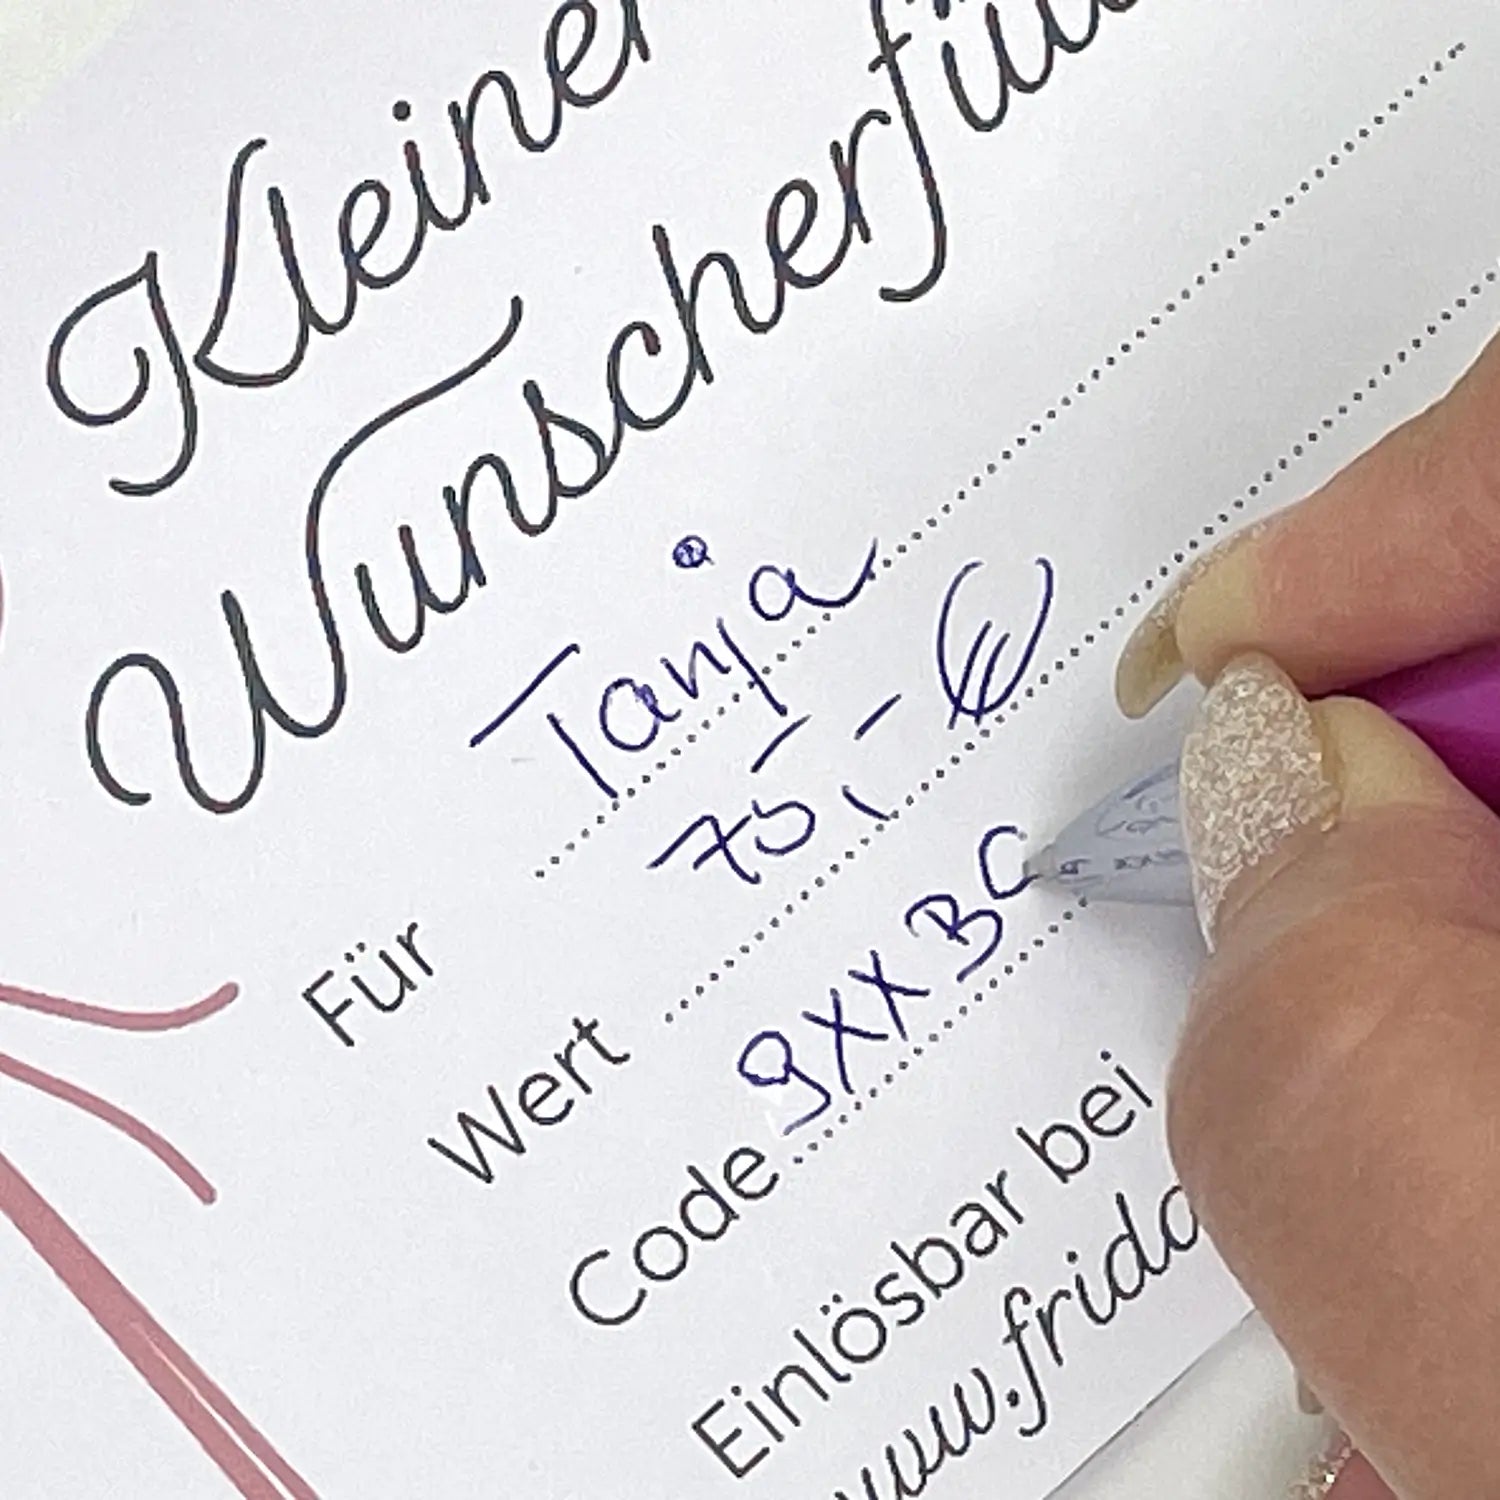 Kleiner
Wunscherfü
Für Tanja
Wert 75,- €
Code 9XXBC
Einlösbar bei
www.frida